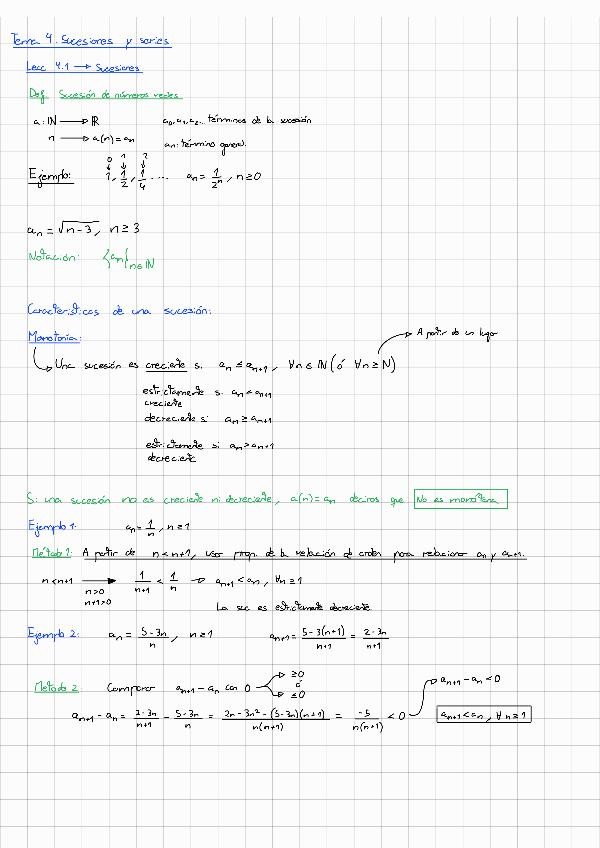 Tema 4. Sucesiones y series
Lecc 4.1 → Sucesiones
Def Sucesión de números reales
a: ℕ → ℝ a₀, a₁, a₂... términos de la sucesión
n → a(n) = aₙ aₙ: término general
0 1 2
↓ ↓ ↓
Ejemplo: 1, 1/2, 1/4 ... aₙ = 1/2ⁿ, n ≥ 0
aₙ = √(n-3), n ≥ 3
Notación: {aₙ}ₙ∈ℕ
Características de una sucesión:
Monotonía: A partir de un lugar
Una sucesión es creciente si aₙ ≤ aₙ₊₁, ∀n ∈ ℕ (ó ∀n ≥ N)
estrictamente si aₙ < aₙ₊₁
creciente
decreciente si aₙ ≥ aₙ₊₁
estrictamente si aₙ > aₙ₊₁
decreciente
Si una sucesión no es creciente ni decreciente, a(n) = aₙ decimos que No es monótona
Ejemplo 1: aₙ = 1/n, n ≥ 1
Método 1: A partir de n < n+1, usar prop. de la relación de orden para relacionar aₙ y aₙ₊₁.
n < n+1 → 1/(n+1) < 1/n → aₙ₊₁ < aₙ, ∀n ≥ 1
n > 0
n+1 > 0
La suc es estrictamente decreciente
Ejemplo 2: aₙ = (5-3n)/n, n ≥ 1 aₙ₊₁ = (5-3(n+1))/(n+1) = (2-3n)/(n+1)
Método 2 Comparar aₙ₊₁ - aₙ con 0 → ≥0 ó ≤0 aₙ₊₁ - aₙ < 0
aₙ₊₁ - aₙ = (2-3n)/(n+1) - (5-3n)/n = (2n-3n²-(5-3n)(n+1))/(n(n+1)) = -5/(n(n+1)) < 0 aₙ₊₁ < aₙ, ∀n ≥ 1